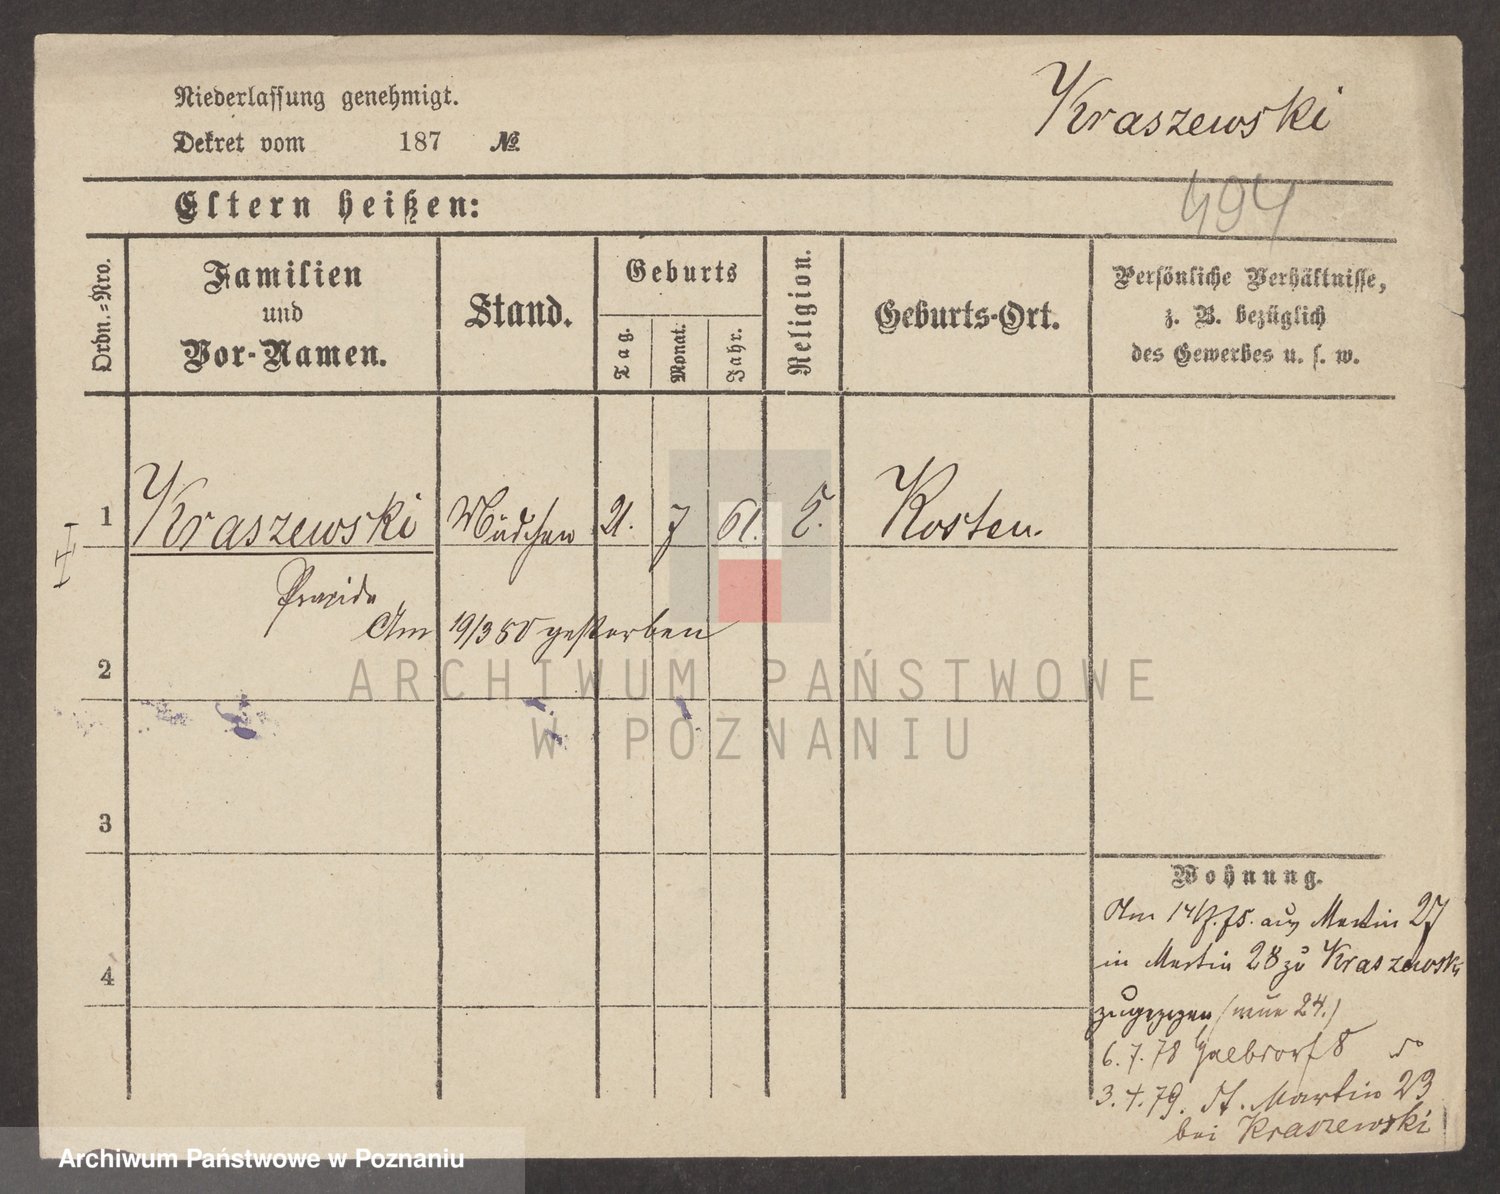 Kraszewski
Niederlassung genehmigt.
Dekret vom 187 №
494
Eltern heißen:
Ordn.-Nro.
Familien
und
Vor-Namen.
Stand.
Geburts
Tag.
Monat.
Jahr.
Religion.
Geburts-Ort.
Persönliche Verhältnisse,
z. B. bezüglich
des Gewerbes u. s. w.
1 Kraszewski Mädchen 21. 7 61. Kosten.
Praxida
Am 19/3 80 gestorben
2
ARCHIWUM PAŃSTWOWE
W POZNANIU
3
Wohnung.
Am 14/7.75. aus Martin 27
4
in Martin 28 zu Kraszewski
zugezogen (neue 24.)
6.7.78 Halbdorf 8 do
3.4.79. St. Martin 23
bei Kraszewski
Archiwum Państwowe w Poznaniu